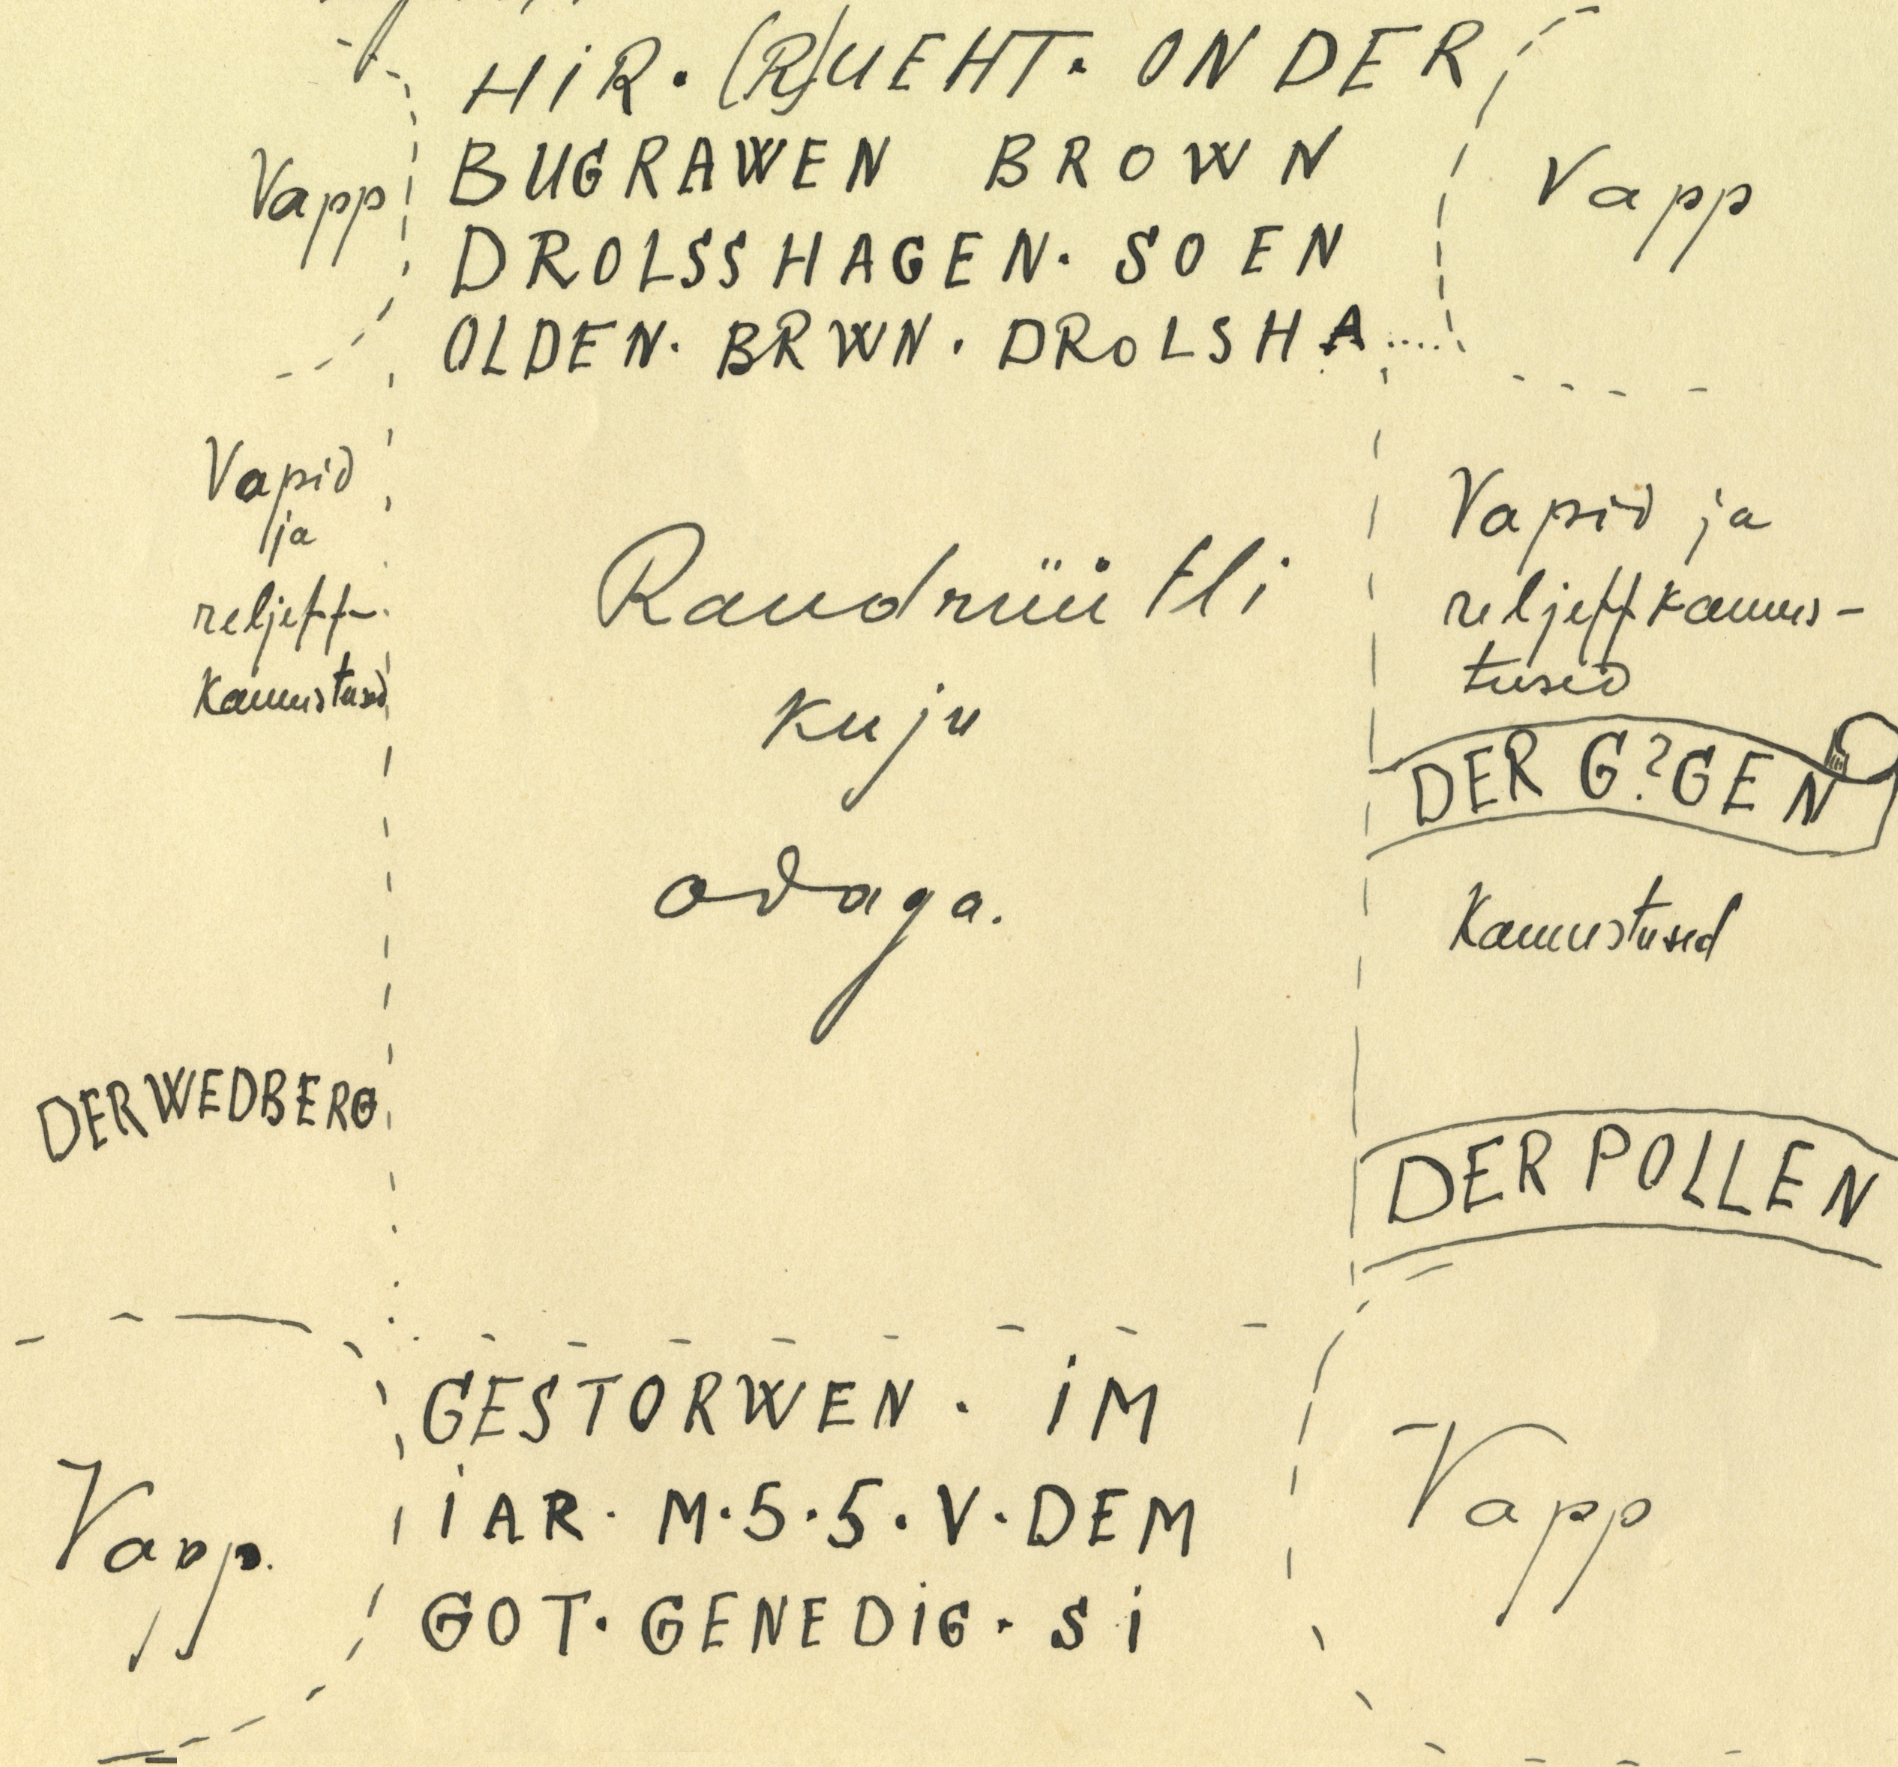 HIR. (R)UEHT. ON DER
BUGRAWEN BROWN
DROLSSHAGEN. SOEN
OLDEN. BRWN. DROLSHA.....
Vapp
Vapp
Vapid
ja
reljeff-
kaunistused
Raudrüütli
kuju
odaga.
Vapid ja
reljeffkaunis-
tused
DER G?GEN
Kaunistused
DER WEDBERG
DER POLLEN
GESTORWEN. iM
iAR. M.5.5.V.DEM
GOT. GENEDiG. Si
Vapp.
Vapp